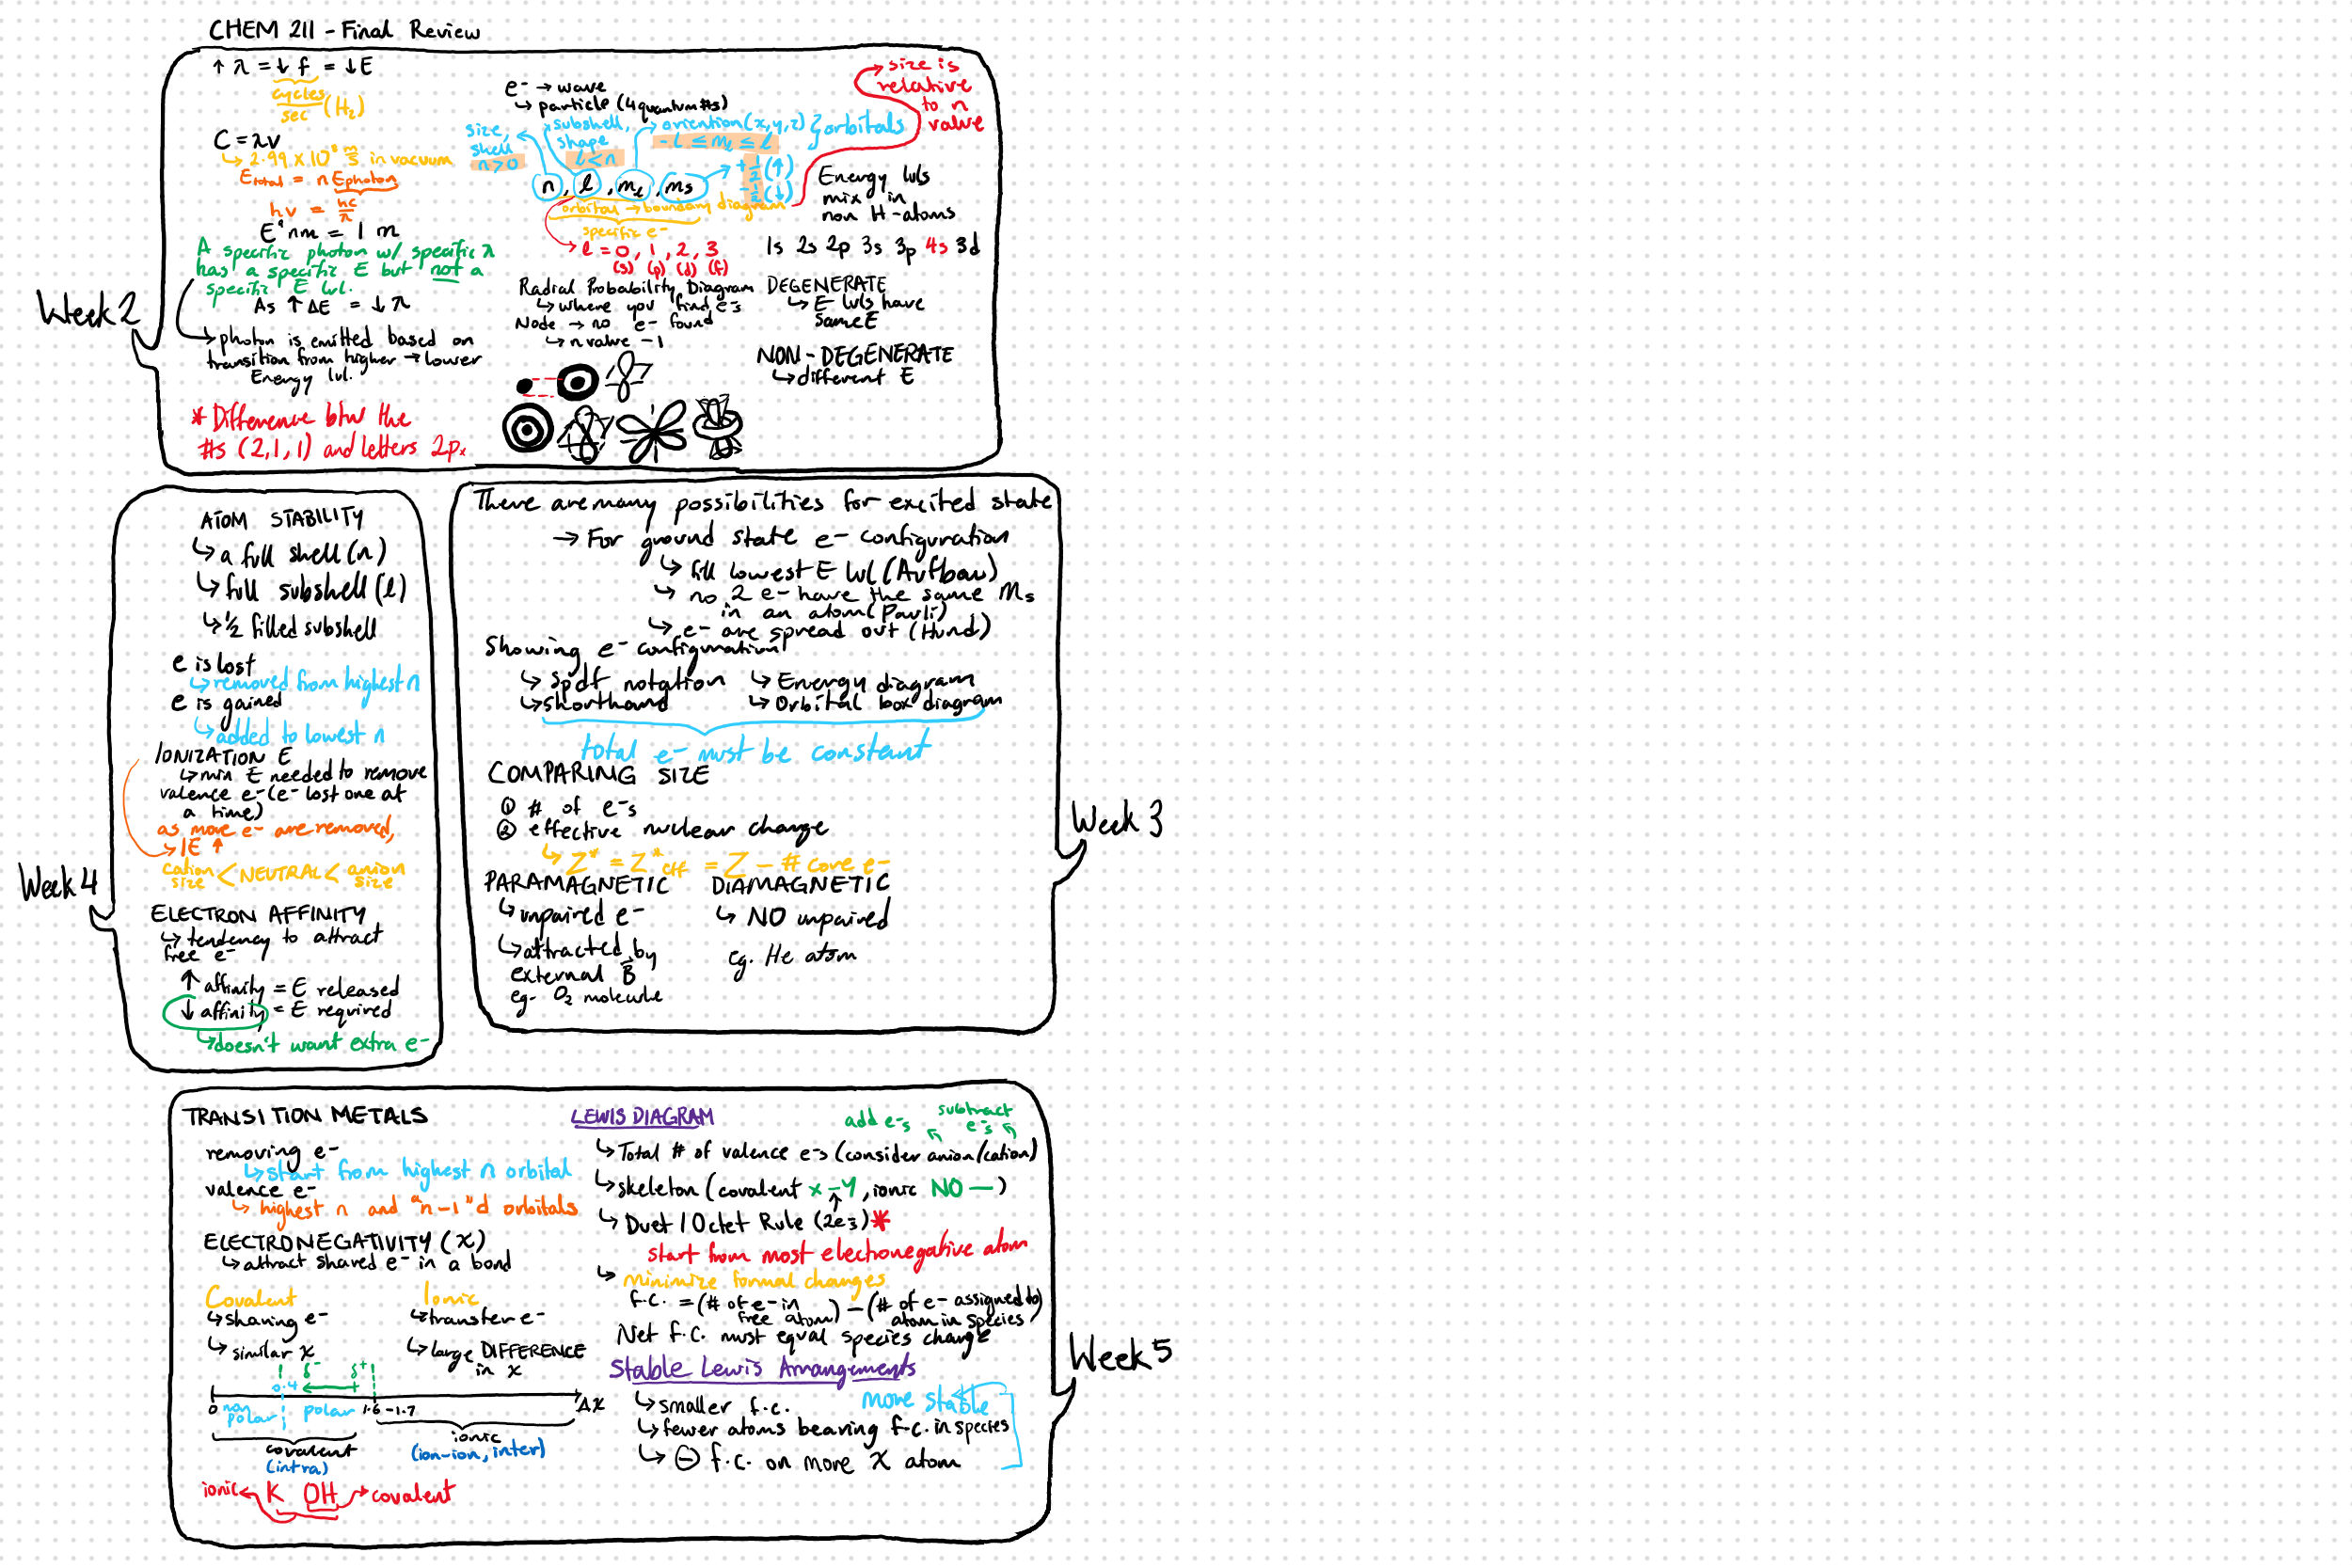 CHEM 211 - Final Review
Week 2
↑ λ = ↓ f = ↓E
cycles/sec (Hz)
C = λν
↳ 2.99 x 10⁻⁸ m/s in vacuum
Etotal = n Ephoton
hν = hc/λ
E⁹ nm = 1 m
A specific photon w/ specific λ
has a specific E but not a
specific E lvl.
As ↑ ΔE = ↓ λ
↳ photon is emitted based on
transition from higher → lower
Energy lvl.
* Difference btw the
#s (2,1,1) and letters 2pₓ
e⁻ → wave
↳ particle (4 quantum #s)
size,
shell
n>0
subshell,
shape
l<n
oriention (x,y,z) } orbitals
-l ≤ ml ≤ l
+½ (↑)
-½ (↓)
n, l, ml, ms
orbital → boundary diagram
specific e⁻
size is
relative
to n
value
l = 0, 1, 2, 3
(s) (p) (d) (f)
Radial Probability Diagram
↳ where you find e⁻s
Node → no e⁻ found
↳ n value -1
Energy lvls
mix in
non H-atoms
1s 2s 2p 3s 3p 4s 3d
DEGENERATE
↳ E lvls have
same E
NON-DEGENERATE
↳ different E
Week 3
There are many possibilities for excited state
→ For ground state e⁻ configuration
↳ fill lowest E lvl (Aufbau)
↳ no 2 e⁻ have the same Ms
in an atom (Pauli)
↳ e⁻ are spread out (Hund)
Showing e⁻ configuration
↳ spdf notation ↳ Energy diagram
↳ shorthand ↳ Orbital box diagram
total e⁻ must be constant
COMPARING SIZE
① # of e⁻s
② effective nuclear charge
↳ Z* = Z*eff = Z - # core e⁻
PARAMAGNETIC DIAMAGNETIC
↳ unpaired e⁻ ↳ NO unpaired
↳ attracted by
external B
eg. O₂ molecule
eg. He atom
Week 4
ATOM STABILITY
↳ a full shell (n)
↳ full subshell (l)
↳ ½ filled subshell
e is lost
↳ removed from highest n
e is gained
↳ added to lowest n
IONIZATION E
↳ min E needed to remove
valence e⁻ (e⁻ lost one at
a time)
as more e⁻ are removed,
→ IE ↑
cation size < NEUTRAL < anion size
ELECTRON AFFINITY
↳ tendency to attract
free e⁻
↑ affinity = E released
↓ affinity = E required
↳ doesn't want extra e⁻
Week 5
TRANSITION METALS
removing e⁻
↳ start from highest n orbital
valence e⁻
↳ highest n and "n-1" d orbitals
ELECTRONEGATIVITY (χ)
↳ attract shared e⁻ in a bond
Covalent Ionic
↳ sharing e⁻ ↳ transfer e⁻
↳ similar χ ↳ large DIFFERENCE
in χ
δ⁻ δ⁺
0.4
0 non polar polar 1.6-1.7 Δχ
covalent
(intra)
ionic
(ion-ion, inter)
ionic ← K OH → covalent
LEWIS DIAGRAM
add e⁻s subtract e⁻s
↳ Total # of valence e⁻s (consider anion/cation)
↳ skeleton (covalent x-y, ionic NO —)
↳ Duet / Octet Rule (2e⁻s) *
start from most electronegative atom
↳ minimize formal charges
f.c. = (# of e⁻ in free atom) - (# of e⁻ assigned to atom in species)
Net f.c. must equal species charge
Stable Lewis Arrangements
more stable
↳ smaller f.c.
↳ fewer atoms bearing f.c. in species
↳ ⊖ f.c. on more χ atom